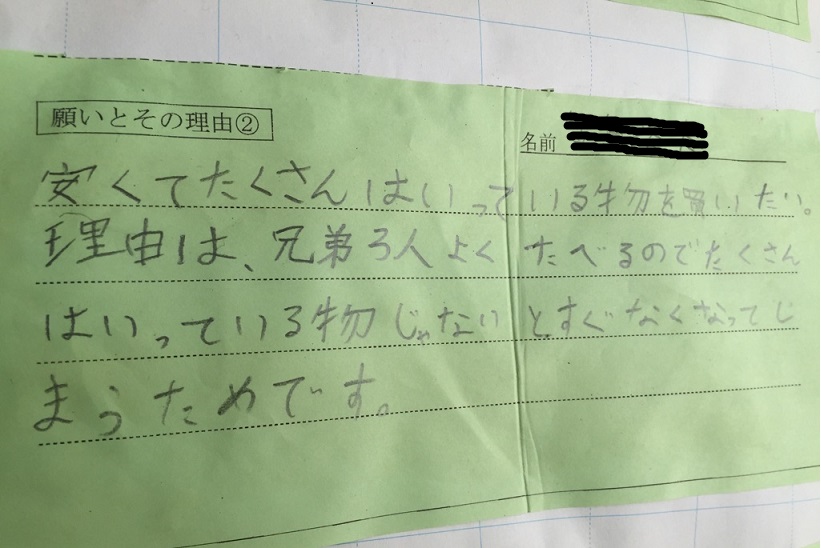 願いとその理由②
名前
安くてたくさんはいっている物を買いたい。
理由は、兄弟3人よくたべるのでたくさん
はいっている物じゃないとすぐなくなってし
まうためです。